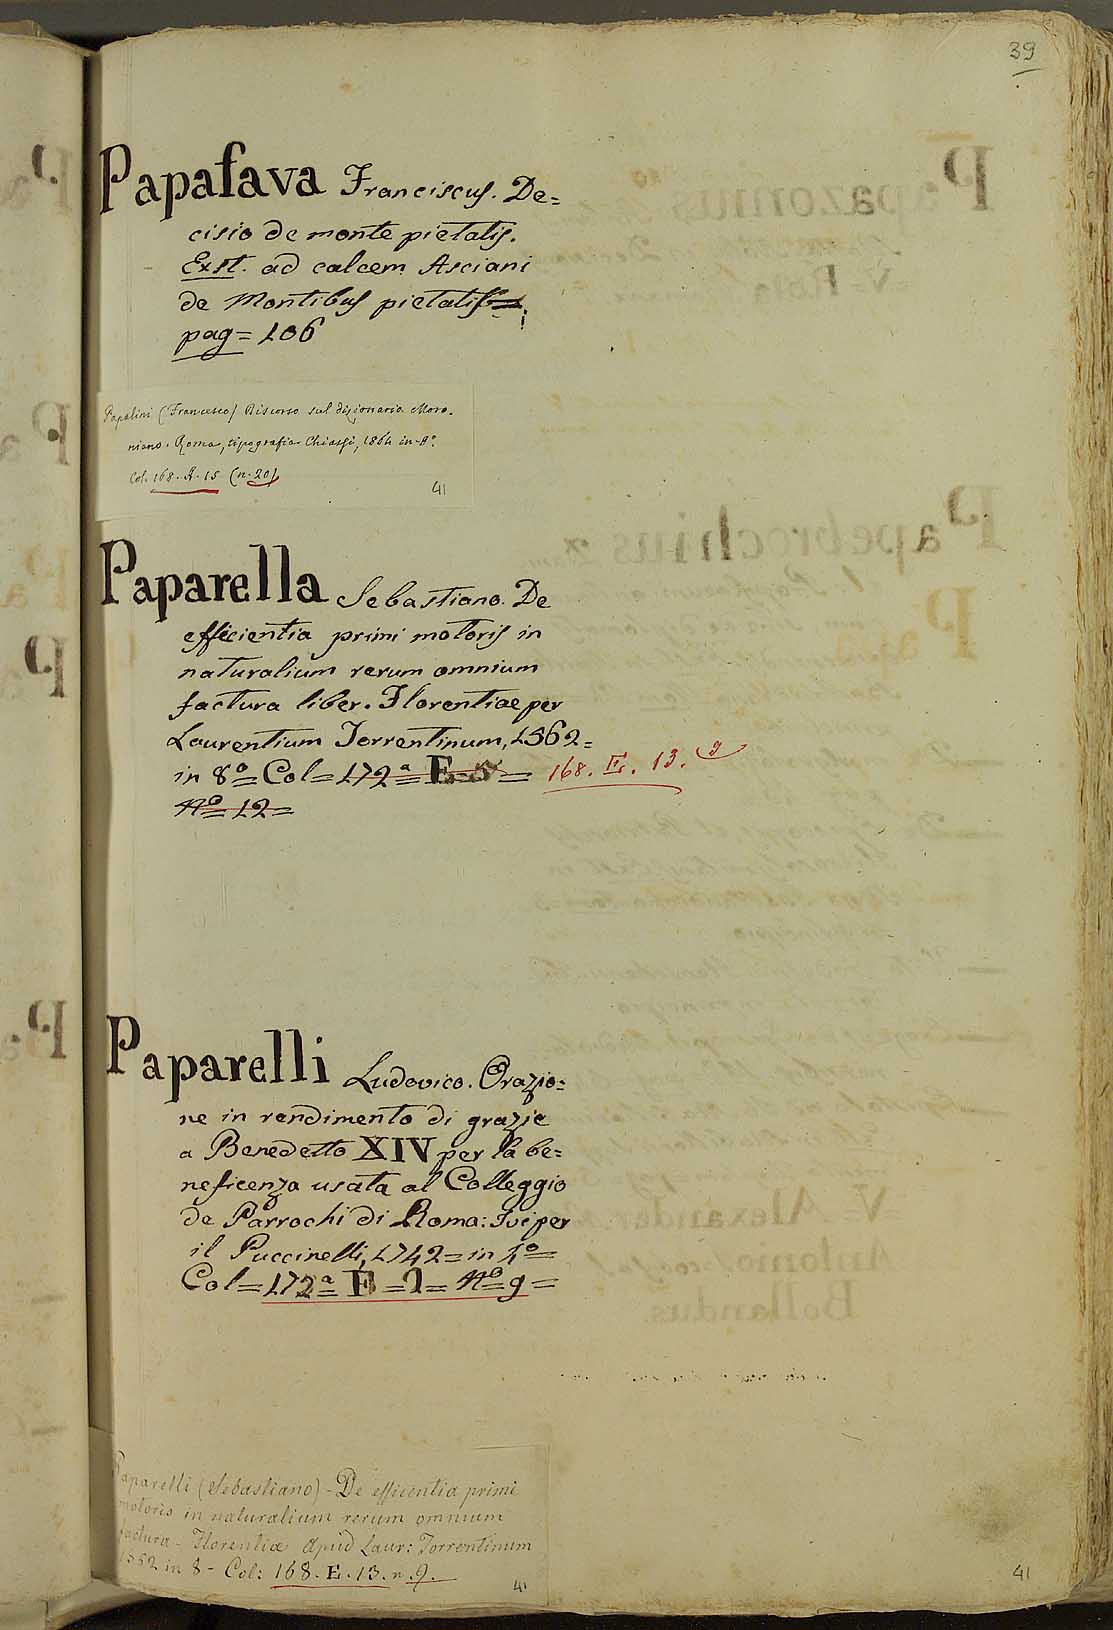 39
Papafava Franciscus. De=
cisio de monte pietatis.
Exst. ad calcem Asciani
de Montibus pietatis
pag= 106
Papalini (Francesco) Discorso sul dizionario Moro-
niano. Roma, tipografia Chiassi, 1864 in-8º
Col. 168. A. 15 (n. 20)
41
Paparella Sebastiano. De
efficientia primi motoris in
naturalium rerum omnium
factura liber. Florentiae per
Laurentium Torrentinum, 1562=
in 8º= Col= 172ª= E= 5= 168. E. 13. 9
Nº= 12=
Paparelli Ludovico. Orazio=
ne in rendimento di grazie
a Benedetto XIV per la be=
neficenza usata al Colleggio
de Parrochi di Roma: Ivi per
il Puccinelli, 1742= in 4º=
Col= 172ª= E= 2= Nº= 9=
Paparelli (Sebastiano) - De efficentia primi
motoris in naturalium rerum omnium
factura - Florentiæ apud Laur: Torrentinum
1552 in 8 - Col: 168. E. 13. n. 9.
41
41